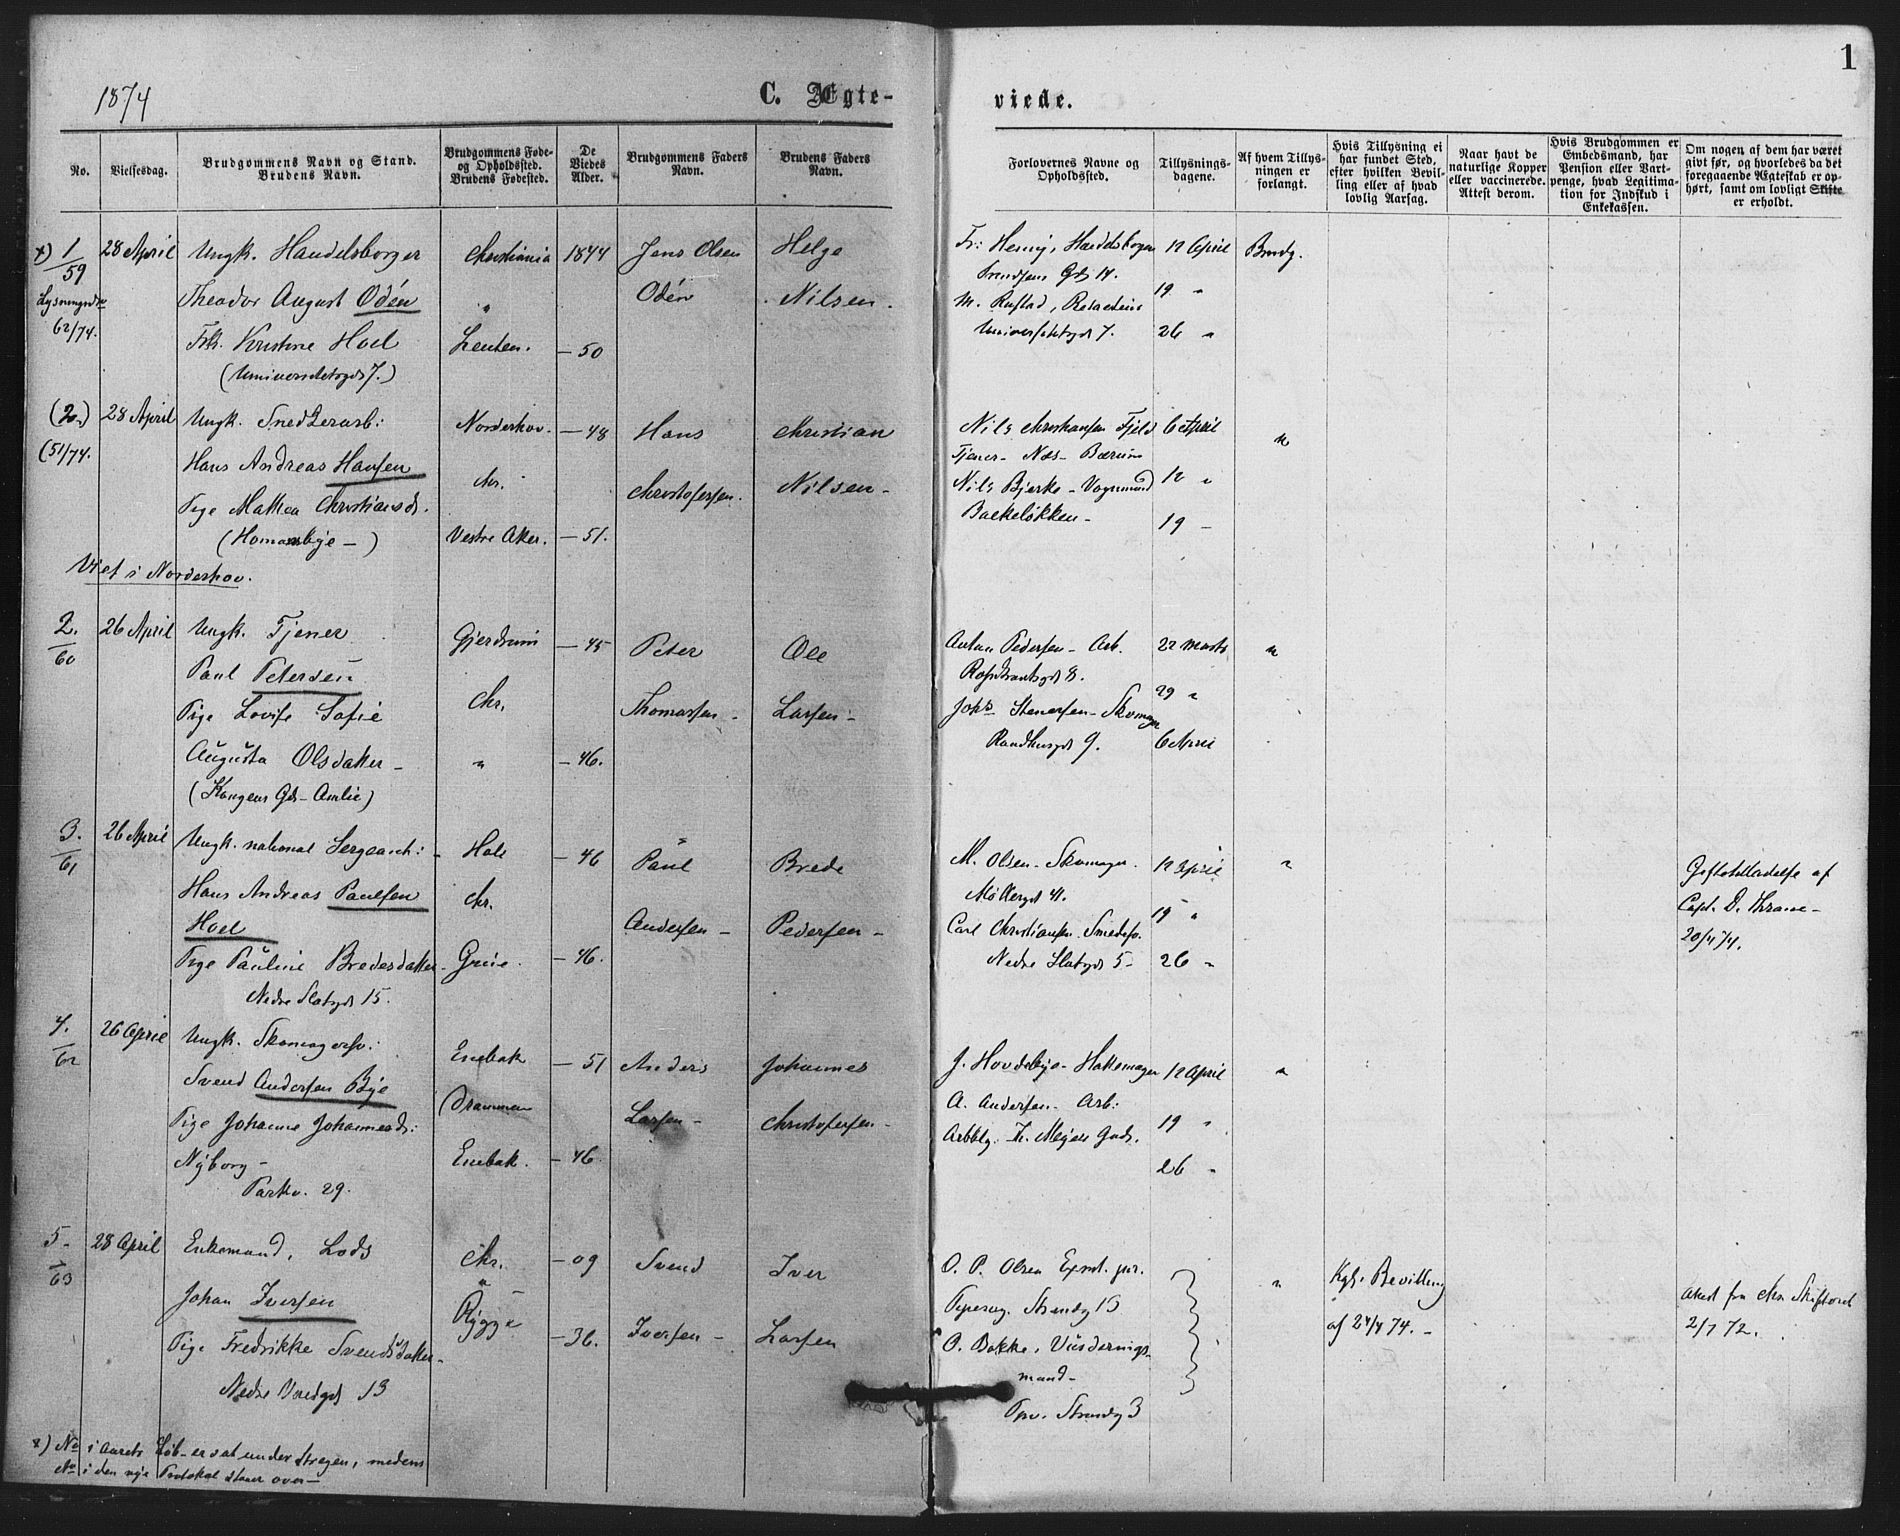 1874
C. Ægte-
viede.
1
No.
Vielsesdag.
Brudgommens Navn og Stand.
Brudens Navn.
Brudgommens Føde-
og Opholdssted.
Brudens Fødested.
De
Viedes
Alder.
Brudgommens Faders
Navn.
Brudens Faders
Navn.
Forlovernes Navne og
Opholdssted.
Tillysnings-
dagene.
Af hvem Tillys-
ningen er
forlangt.
Hvis Tillysning ei
har fundet Sted,
efter hvilken Bevil-
ling eller af hvad
lovlig Aarsag.
Naar havt de
naturlige Kopper
eller vaccinerede.
Attest derom.
Hvis Brudgommen er
Embedsmand, har
Pension eller Vart-
penge, hvad Legitima-
tion for Indskud i
Enkekassen.
Om nogen af dem har været
givt før, og hvorledes da det
foregaaende Ægteskab er op-
hørt, samt om lovligt Skifte
er erholdt.
x) 1/59
28 April
Ungk. Handelsborger
Theodor August Odén
Frk. Kristine Hoel
(Universitetsgd 7.)
62/74.
Christiania
"
Leuten.
1844
— 50
Jens Olsen
Odén
Helge
Nilsen.
Fr: Henij, Handelsborger
Gd 14.
M. Rustad,
Universitetsgd 7.
12 April
19 "
26 "
Brudg.
(2.)
(51/74.
28 April
Ungk. Snedkerarb:
Hans Andreas Hansen
Pige Mathea Christiansd.
(Homansbye —)
Norderhov.
Chr.
Vestre Aker.
— 48
— 51.
Hans
Christofersen.
Christian
Nilsen —
Nils Christiansen Fjeld
Tjener — Næs — Bærum
Nils Bjerke — Vognmand
Bakkeløkken —
6 April
12 "
19 —
"
Viet i Norderhov.
2./60
26 April
Ungk. Tjener
Paul Petersen
Pige Lovise Sofie
Augusta Olsdatter —
(Kongens Gd —)
Gjerdrum
Chr.
"
— 45
— 46.
Peter
Thomassen —
Ole
Larsen —
Anton Pedersen — Arb.
Rosenkrantzgd 8.
Johs Stenersen — Skomager
Raadhusgd 9.
22 Marts
29 "
6 April
"
3./61
26 April
Ungk. national Sergeant: —
Hans Andreas Paulsen
Hoel
Pige Pauline Bredesdatter —
Nedre Slotsgd 15.
Hole
Chr.
Grue.
— 46
— 46.
Paul
Andersen —
Brede
Pedersen —
M. Olsen — Skomager.
Møllergd 41.
Carl Christiansen. Smedesv.
Nedre Slotsgd 5 —
12 April
19 "
26 "
"
Giftetilladelse af
Capt. D. Thrane —
20/4 74.
4./62
26 April
Ungk. Skomagersv:
Svend Andersen Bye
Pige Johanne Johannesd:
Nyborg —
Parkv. 29.
Enebak
(Drammen
Enebak.
— 51
— 46.
Anders
Larsen —
Johannes
Christofersen —
J. Hovdebye — Hattemager
A. Andersen — Arb:
Arbblg. Th. Meyers Gade.
12 April
19 "
26 "
"
5 —/63
28 April
Enkemand, Lods
Johan Iversen
Pige Fredrikke Svendsdatter —
Nedre Voldgd 13
Chr.
"
Rygge
— 09
— 36.
Svend
Iversen —
Iver
Larsen
O. P. Olsen
Strandg 13
O. Bakke, Vurderings-
mand —
Strandg 3
"
Kgl. Bevilling
af 24/4 74. —
Attest fra Chra Skifteret
2/7 72.
x) No i Aarets Løb er sat under Stregen, medens
No i den nye Protokol staaer over —